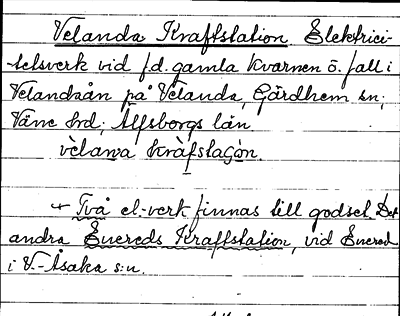 Velanda Kraftstation. Elektrici-
tetsverk vid f.d. gamla kvarnen ö. fall i
Velandaån på Velanda, Gärdhem sn;
Väne hrd; Älfsborgs län.
vèlanda kràfstaʃón.
+ Två el.-verk finnas till godset. Det
andra Enereds Kraftstation, vid Enered
i V.-Åsaka s:n.